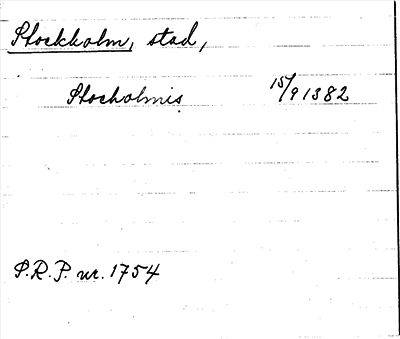 Stockholm, stad,
Stocholmis 15/9 1382
P.R.P. nr. 1754